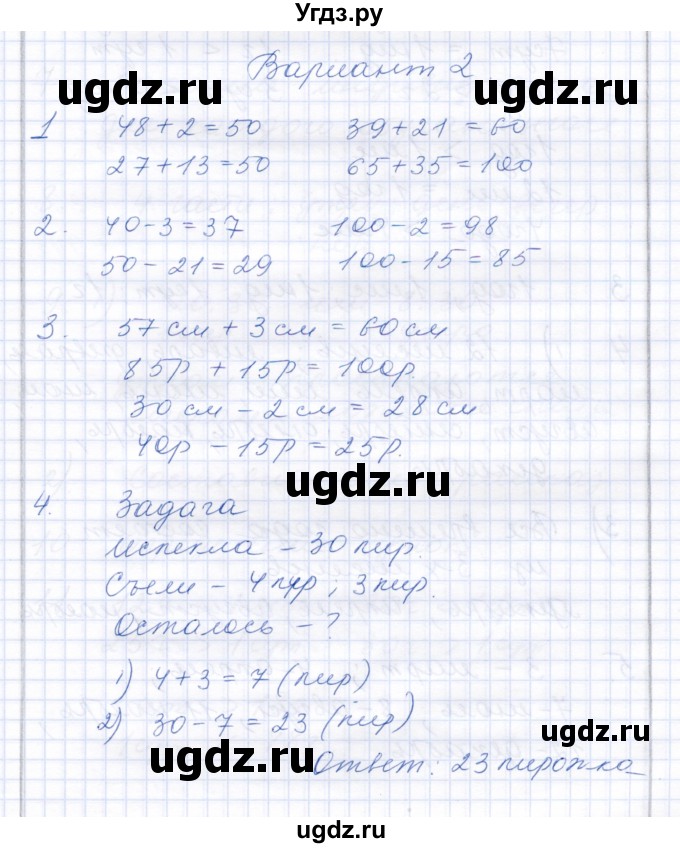 Угдз.ру
Вариант 2
ugdz.ru ugdz.ru
1 48+2=50 39+21=60
27+13=50 65+35=100
2. 40-3=37 100-2=98
50-21=29 100-15=85
ugdz.ru ugdz.ru
3. 57см + 3см = 60см
85р + 15р = 100р.
30см - 2см = 28см
40р - 15р = 25р.
ugdz.ru
4. Задача
Испекла - 30 пир.
Съели - 4 пир; 3 пир.
Осталось - ?
1) 4+3=7 (пир)
2) 30-7=23 (пир)
ugdz.ru ugdz.ru
Ответ: 23 пирожка
ugdz.ru